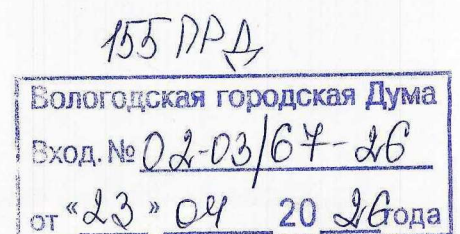 155 ПРД
Вологодская городская Дума
Вход. № 02-03/67-26
от "23" 04 20 26 года